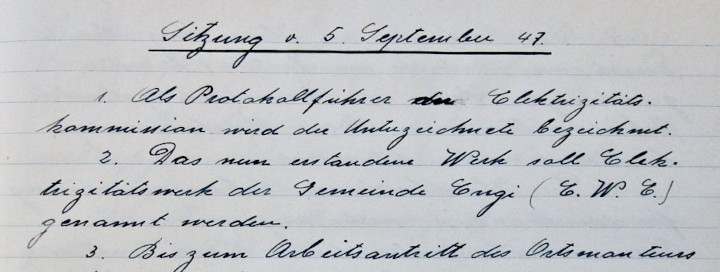 Sitzung v. 5. September 47.
1. Als Protokollführer der Elektrizitäts-
kommission wird der Unterzeichnete bezeichnet.
2. Das nun erstandene Werk soll Elek-
trizitätswerk der Gemeinde Engi (E. W. E.)
genannt werden.
3. Bis zum Arbeitsantritt des Ortsmonteurs